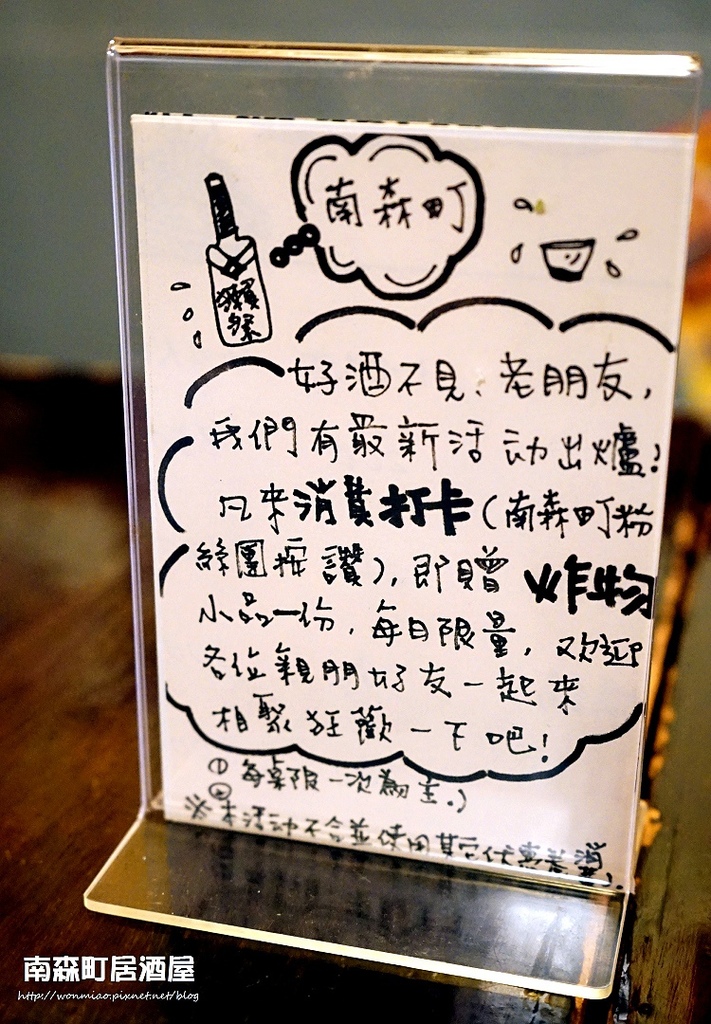 南森町
獺祭
好酒不見、老朋友,
我們有最新活动出爐!
凡來消費打卡(南森町粉
絲團按讚),即贈炸物
小品一份,每日限量,欢迎
各位親朋好友一起來
相聚狂歡一下吧!
每桌限一次為主。)
※本活动不合並使用其它优惠
南森町居酒屋
http://wonmiao.pixnet.net/blog